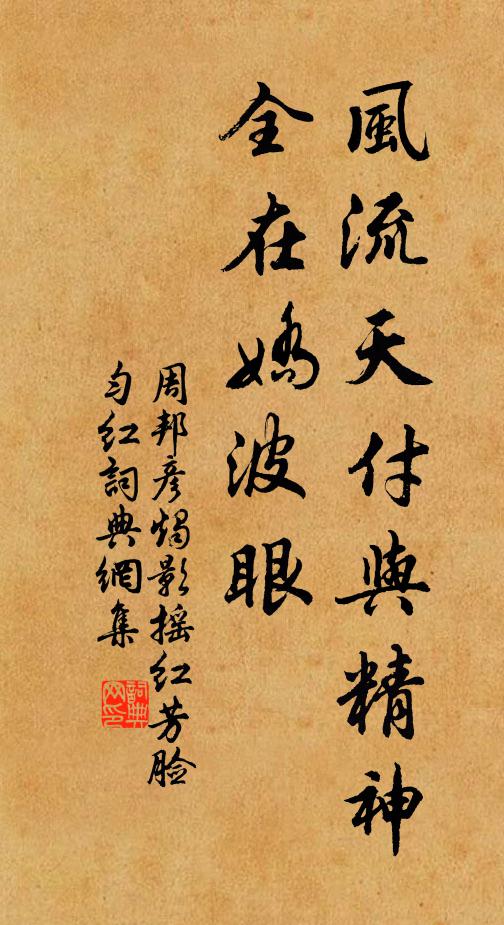 風流天付與精神
全在嬌波眼
周邦彦燭影摇紅芳臉
匀紅詞典網集
詞典
网印